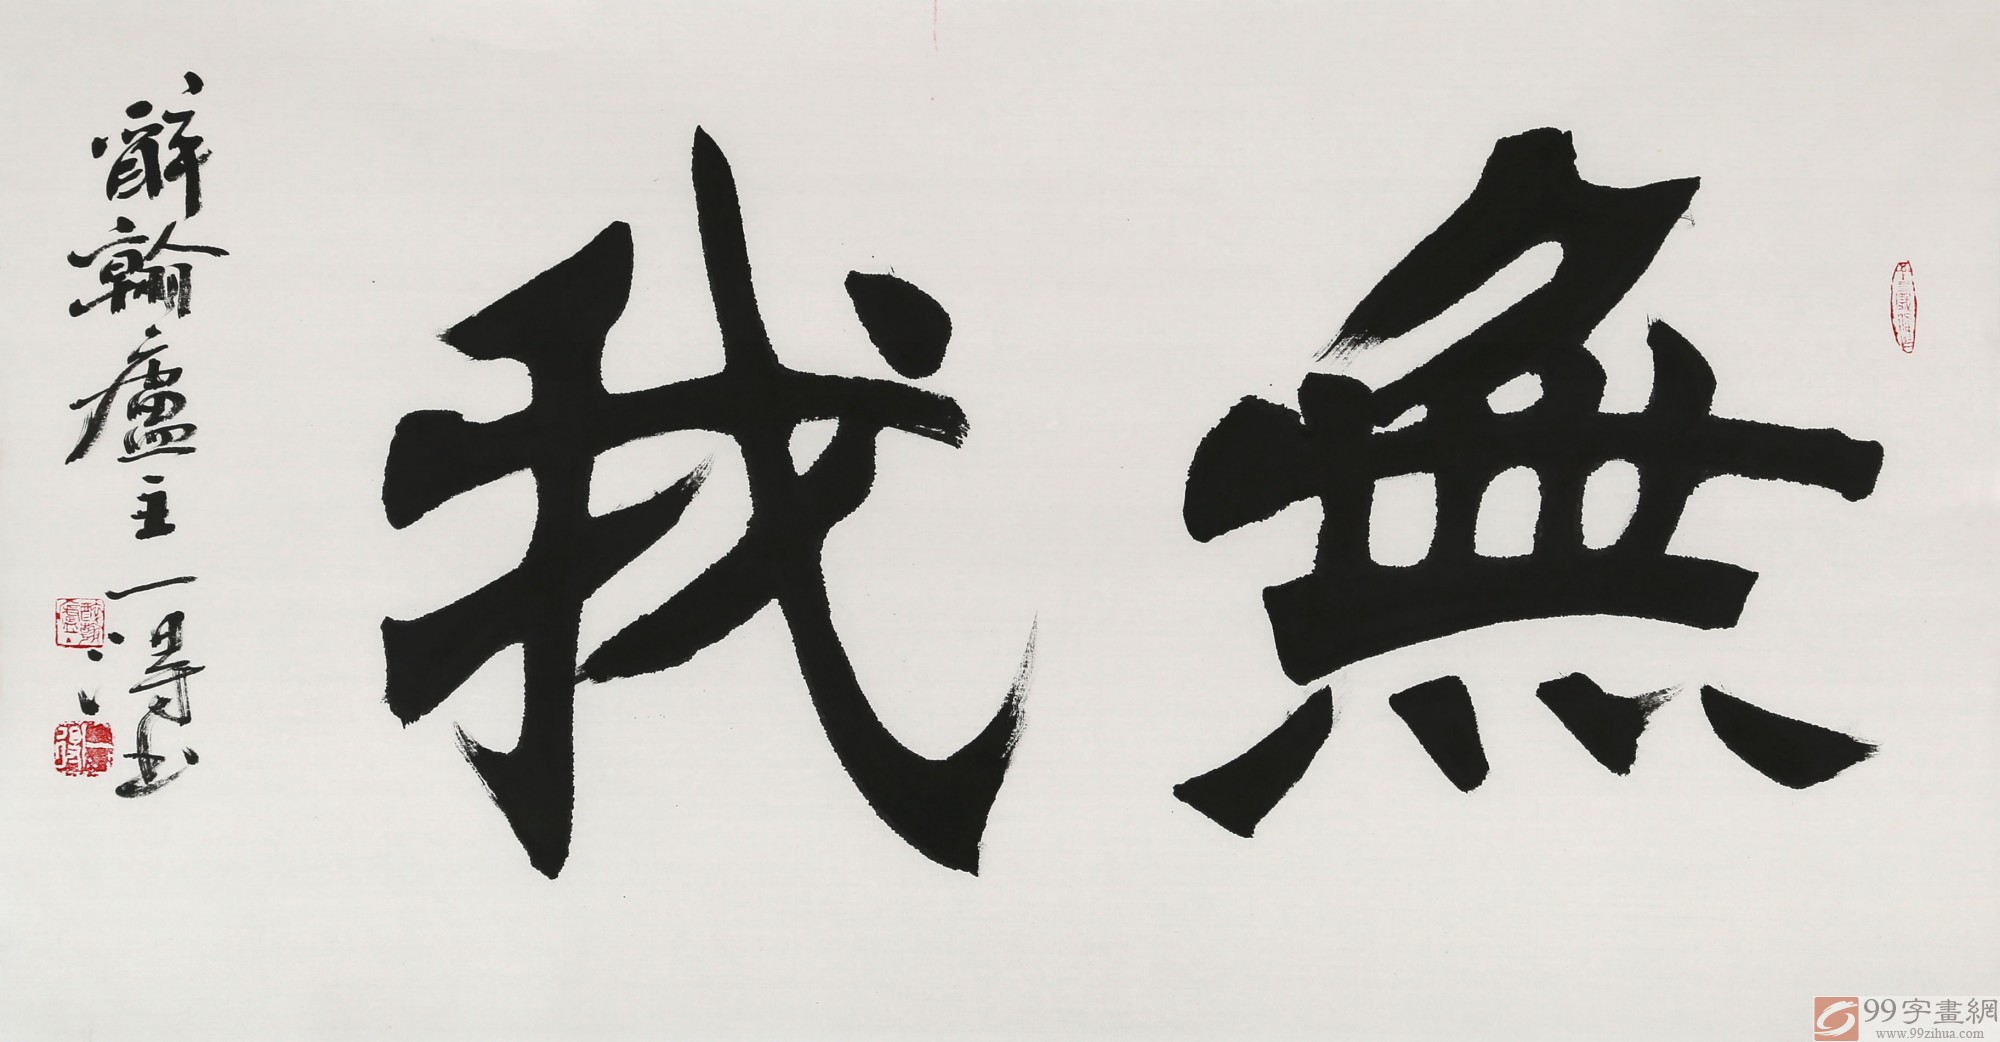 無我
醉翰廬主一得书
99字畫網
www.99zihua.com